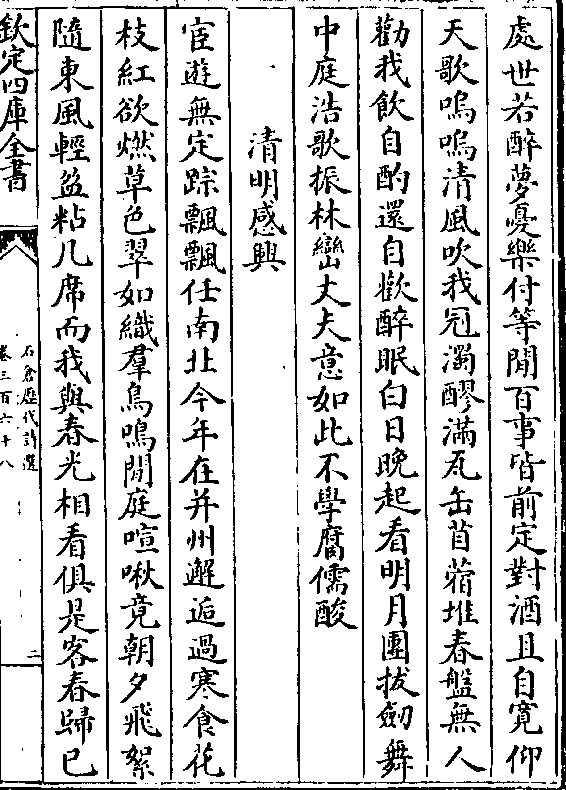 處世若醉夢憂樂付等閒百事皆前定對酒且自寛仰
天歌嗚嗚清風吹我冠濁醪滿瓦缶苜蓿堆春盤無人
勸我飲自酌還自歡醉眠白日晚起看明月團拔劒舞
中庭浩歌振林巒丈夫意如此不學腐儒酸
清明感興
宦遊無定踪飄飄任南北今年在并州邂逅過寒食花
枝紅欲燃草色翠如織羣鳥鳴閒庭喧啾竟朝夕飛絮
隨東風輕盈粘几席而我與春光相看俱是客春歸已
欽定四庫全書
石倉歷代詩選
卷三百六十八
二